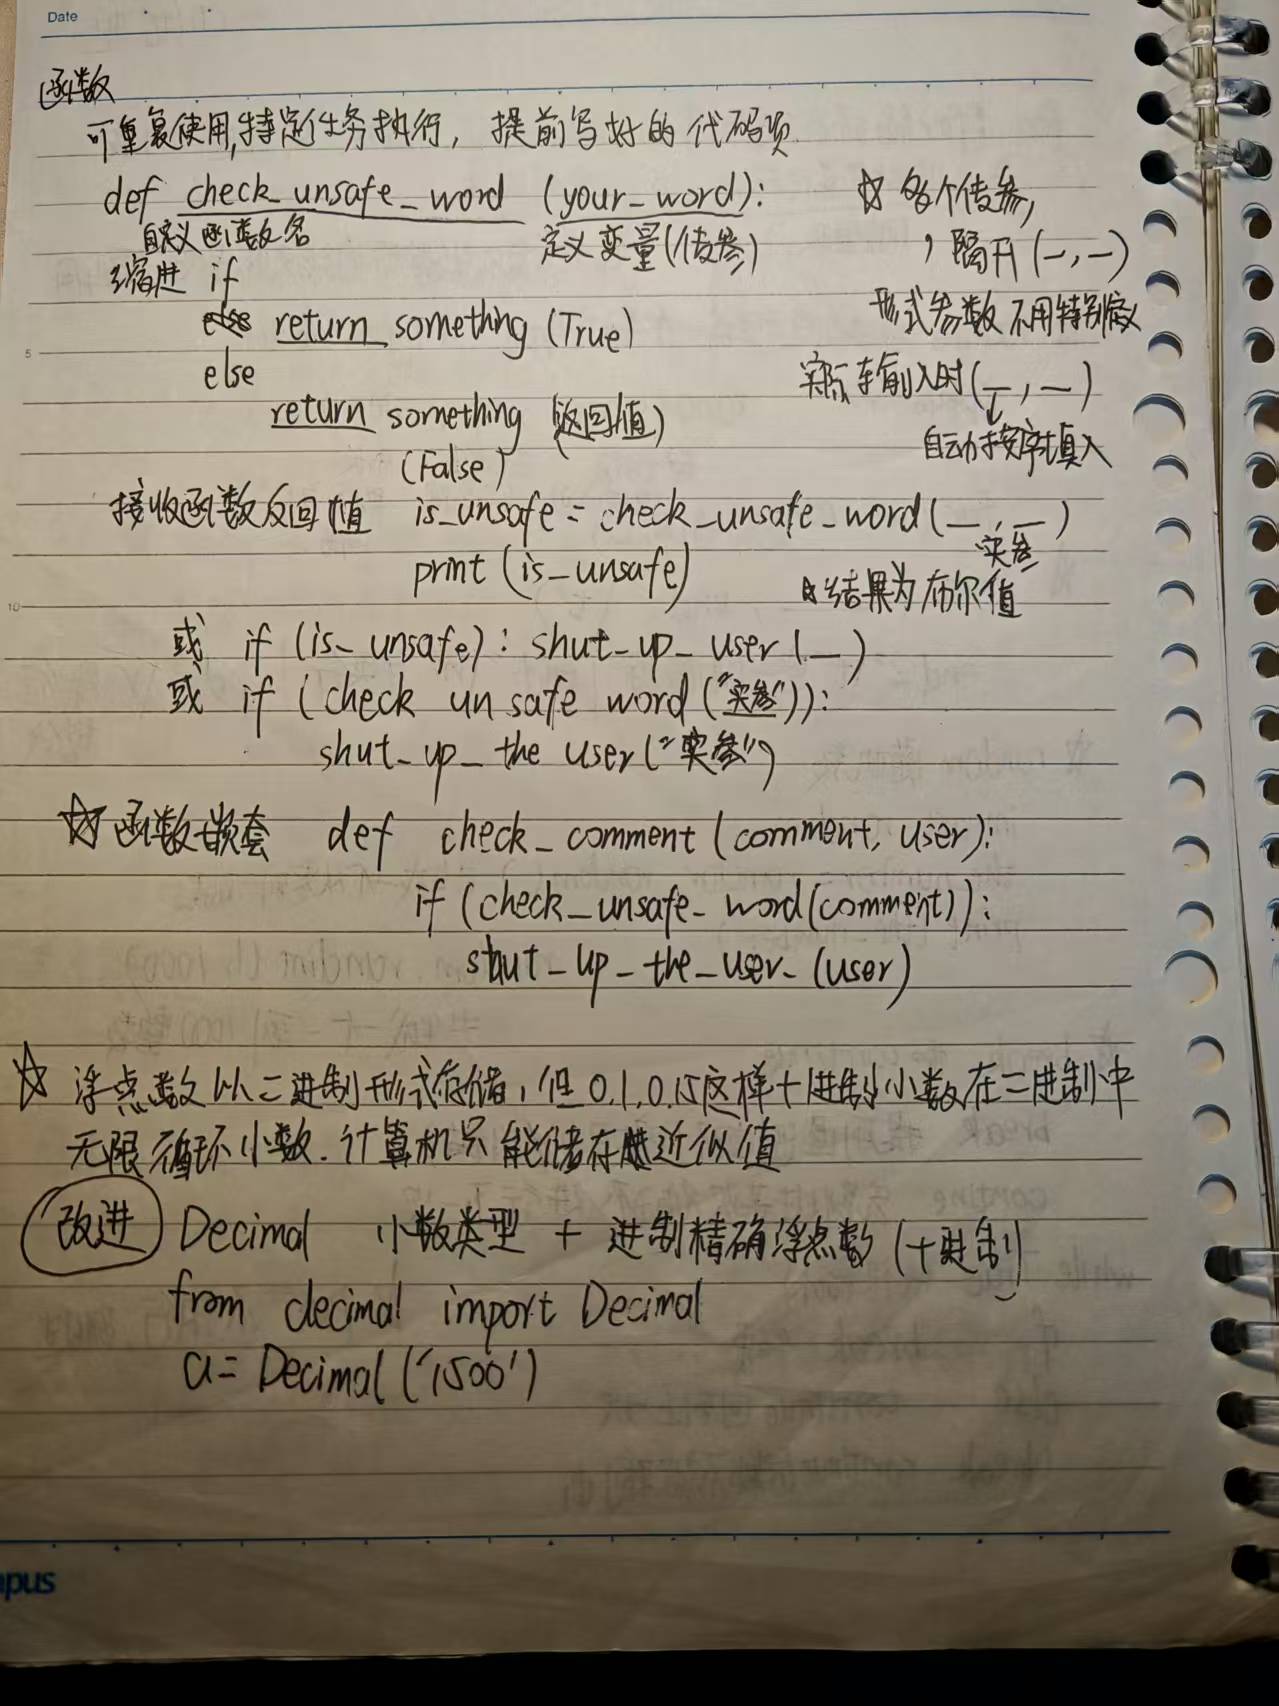 Date
函数
可重复使用,特定任务执行，提前写好的代码项
def check_unsafe_word (your_word):
自定义函数名
定义变量(传参)
☆ 多个传参,
, 隔开 (—,—)
形式参数 不用特别定义
缩进 if
return something (True)
else
实际在输入时(—,—)
↓
自动按序填入
return something (返回值)
(False)
接收函数反回值 is_unsafe = check_unsafe_word(—,—)
实参
print (is_unsafe)
结果为布尔值
或 if (is_unsafe): shut_up_user(—)
或 if (check unsafe word("实参")):
shut_up_the user("实参")
☆函数嵌套 def check_comment (comment, user):
if (check_unsafe_word(comment)):
shut_up_the_user_(user)
☆ 浮点数以二进制形式存储，但0.1,0.15这样十进制小数在二进制中
无限循环小数.计算机只能储存其近似值
改进 Decimal 小数类型 十进制精确浮点数(十进制)
from decimal import Decimal
a= Decimal('1500')
5
10
pus